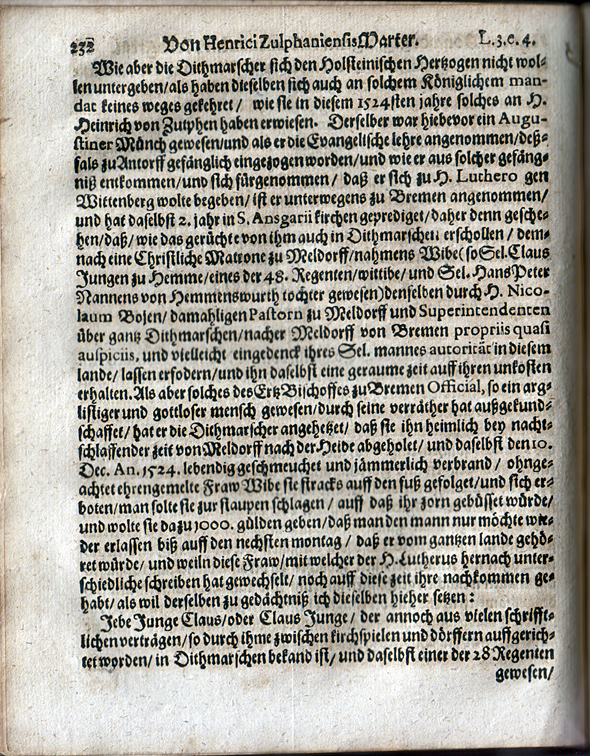 232 Von Henrici Zulphaniensis Marter. L.3.c.4.
Wie aber die Dithmarscher sich den Holsteinischen Hertzogen nicht wol-
len untergeben/als haben dieselben sich auch an solchem Königlichem man-
dat keines weges gekehret/ wie sie in diesem 1524sten jahre solches an H.
Heinrich von Zutphen haben erwiesen. Derselber war hiebevor ein Augu-
stiner Münch gewesen/und als er die Evangelische lehre angenommen/deß-
fals zu Antorff gefänglich eingezogen worden/und wie er aus solcher gefäng-
niß entkommen/und sich fürgenommen/ daß er sich zu H. Luthero gen
Wittenberg wolte begeben/ ist er unterwegens zu Bremen angenommen/
und hat daselbst 2. jahr in S. Ansgarii kirchen geprediget/daher denn gesche-
hen/daß/wie das gerüchte von ihm auch in Dithmarschen erschollen/ dem-
nach eine Christliche Matrone zu Meldorff/nahmens Wibe(so Sel. Claus
Jungen zu Hemme/eines der 48. Regenten/wittibe/ und Sel. Hans Peter
Nannens von Hemmenswurth tochter gewesen)denselben durch H. Nico-
laum Bojen/ damahligen Pastorn zu Meldorff und Superintendenten
über gantz Dithmarschen/nacher Meldorff von Bremen propriis quasi
auspiciis, und vielleicht eingedenck ihres Sel. mannes autorität in diesem
lande/ lassen erfodern/und ihn daselbst eine geraume zeit auff ihren unkosten
erhalten. Als aber solches des Ertz Bischoffes zu Bremen Official, so ein arg-
listiger und gottloser mensch gewesen/durch seine verräther hat außgekund-
schaffet/ hat er die Dithmarscher angehetzet/ daß sie ihn heimlich bey nacht-
schlaffender zeit von Meldorff nach der Heide abgeholet/ und daselbst den 10.
Dec. An. 1524. lebendig geschmeuchet und jämmerlich verbrand/ ohnge-
achtet ehrengemelte Fraw Wibe sie stracks auff den fuß gefolget/und sich er-
boten/man solte sie zur staupen schlagen/ auff daß ihr zorn gebüsset würde/
und wolte sie dazu 1000. gülden geben/daß man den mann nur möchte wie-
der erlassen biß auff den nechsten montag/ daß er vom gantzen lande gehö-
ret würde/ und weiln diese Fraw/mit welcher der H. Lutherus hernach unter-
schiedliche schreiben hat gewechselt/ noch auff diese zeit ihre nachkommen ge-
habt/als wil derselben zu gedächtniß ich dieselben hieher setzen:
Jebe Junge Claus/oder Claus Junge/ der annoch aus vielen schrifft-
lichen verträgen/so durch ihme zwischen kirchspielen und dörffern auffgerich-
tet worden/ in Dithmarschen bekand ist/ und daselbst einer der 28 Regenten
gewesen/